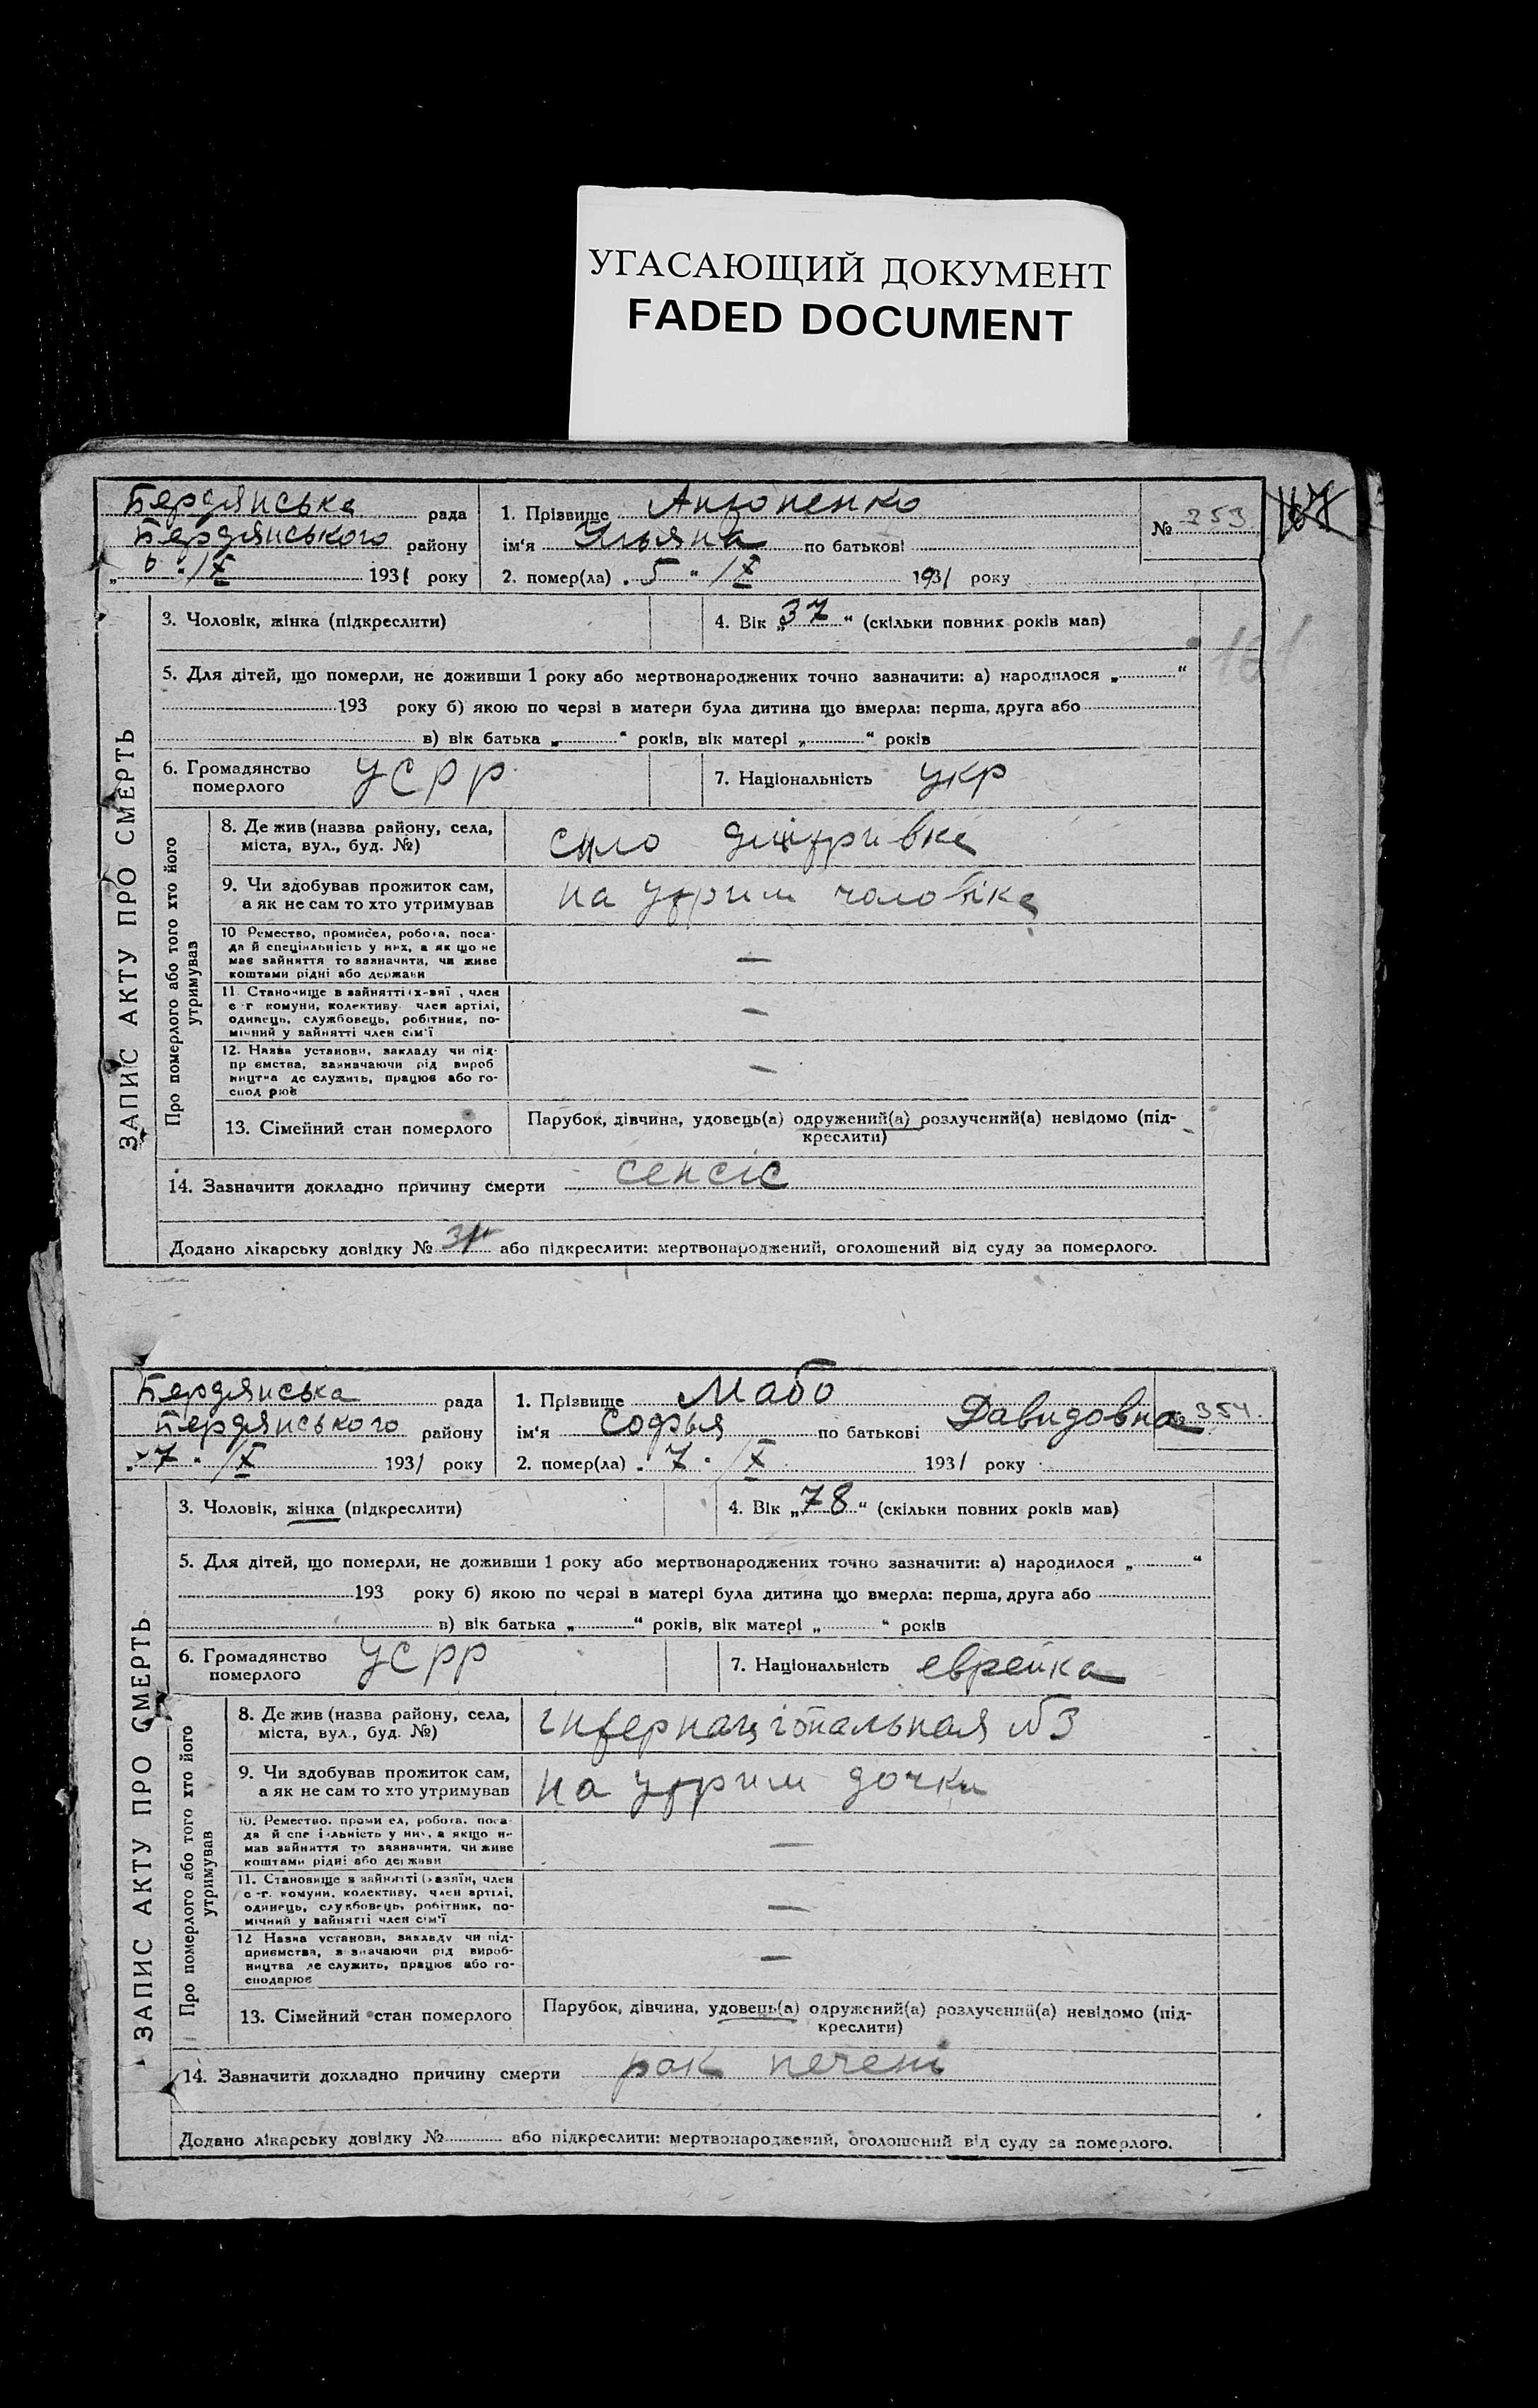 УГАСАЮЩИЙ ДОКУМЕНТ
FADED DOCUMENT
Бердянська рада
Бердянського району
„ 6 " /X 1931 року
1. Прізвище Антоненко
ім'я Ульяна по батькові
№ 353
2. помер(ла) „ 5 " /X 1931 року
3. Чоловік, жінка (підкреслити)
4. Вік „ 37 " (скільки повних років мав)
161
5. Для дітей, що померли, не доживши 1 року або мертвонароджених точно зазначити: а) народилося „ "
193 року б) якою по черзі в матери була дитина що вмерла: перша, друга або
в) вік батька „ " років, вік матері „ " років
6. Громадянство померлого УСРР
7. Національність укр
ЗАПИС АКТУ ПРО СМЕРТЬ
Про померлого або того хто його утримував
8. Де жив (назва району, села,
міста, вул., буд. №)
село Дмитривка
9. Чи здобував прожиток сам,
а як не сам то хто утримував
на утрим чоловіка
10 Ремество, промисел, робота, поса-
да й спеціяльність у них, а як що не
має зайняття то зазначити, чи живе
коштами рідні або держави
—
11 Становище в зайнятті (х-зяї , член
с -г комуни, колективу член артілі,
одинець, службовець, робітник, по-
мічний у зайнятті член сім'ї
—
12. Назва установи, закладу чи під-
пр ємства, зазначаючи рід вироб
ництва де служить, працює або го-
спод рює
—
13. Сімейний стан померлого
Парубок, дівчина, удовець(а) одружений(а) розлучений(а) невідомо (під-
креслити)
14. Зазначити докладно причину смерти сепсіс
Додано лікарську довідку № або підкреслити: мертвонароджений, оголошений від суду за померлого.
Бердянська рада
Бердянського району
„ 7 " /X 1931 року
1. Прізвище Мабо
ім'я Софья по батькові Давидовна
№ 354.
2. помер(ла) „ 7 " /X 1931 року
3. Чоловік, жінка (підкреслити)
4. Вік „ 78 " (скільки повних років мав)
5. Для дітей, що померли, не доживши 1 року або мертвонароджених точно зазначити: а) народилося „ "
193 року б) якою по черзі в матері була дитина що вмерла: перша, друга або
в) вік батька „ " років, вік матері „ " років
6. Громадянство померлого УСРР
7. Національність еврейка
ЗАПИС АКТУ ПРО СМЕРТЬ
Про померлого або того хто його утримував
8. Де жив (назва району, села,
міста, вул., буд. №)
інтернаціональная №3
9. Чи здобував прожиток сам,
а як не сам то хто утримував
на утрим дочки
10. Ремество, проми ел, робота, поса-
да й спе іяльність у них, а якщо не
мав зайняття то зазначити, чи живе
коштами рідні або держави
—
11. Становище в зайнятті (хазяїн, член
с -г. комуни, колективу, член артілі,
одинець, службовець, робітник, по-
мічний у зайнятті член сім'ї
—
12 Назва установи, закладу чи під-
приємства, зазначаючи рід вироб-
ництва де служить, працює або го-
сподарює
—
13. Сімейний стан померлого
Парубок, дівчина, удовець(а) одружений(а) розлучений(а) невідомо (під-
креслити)
14. Зазначити докладно причину смерти рак печені
Додано лікарську довідку № або підкреслити: мертвонароджений, оголошений від суду за померлого.